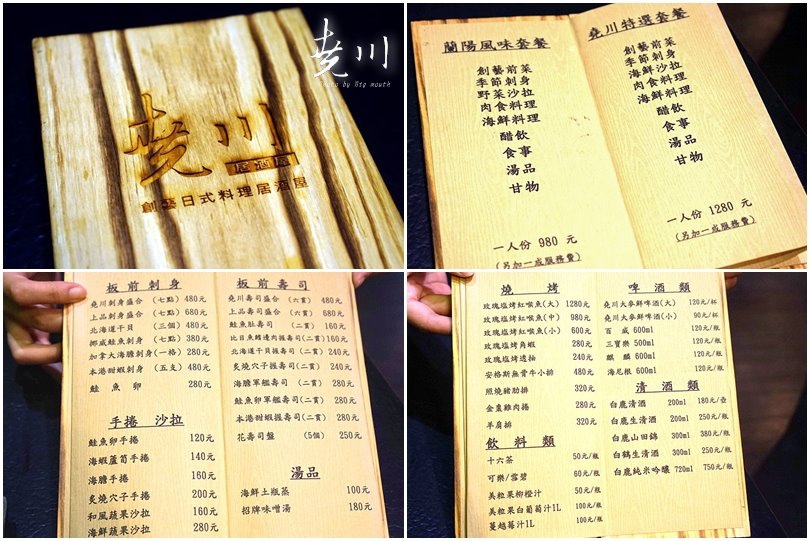 堯川
Photo by Big mouth
堯川
居酒屋
創藝日式料理居酒屋
蘭陽風味套餐
創藝前菜
季節刺身
野菜沙拉
肉食料理
海鮮料理
醋飲
食事
湯品
甘物
一人份 980 元
(另加一成服務費)
堯川特選套餐
創藝前菜
季節刺身
海鮮沙拉
肉食料理
海鮮料理
醋飲
食事
湯品
甘物
一人份 1280 元
(另加一成服務費)
板前刺身
堯川刺身盛合 (七點) 480元
上品刺身盛合 (七點) 680元
北海道干貝 (三個) 480元
挪威鮭魚刺身 (七點) 380元
加拿大海膽刺身(一格) 280元
本港甜蝦刺身 (五支) 480元
鮭魚卵 280元
手捲 沙拉
鮭魚卵手捲 120元
海蝦蘆筍手捲 140元
海膽手捲 160元
炙燒穴子手捲 200元
和風蔬果沙拉 160元
海鮮蔬果沙拉 280元
板前壽司
堯川壽司盛合 (六貫) 480元
上品壽司盛合 (六貫) 680元
鮭魚肚壽司 (二貫) 160元
比目魚鰭邊肉握壽司(二貫) 160元
北海道干貝握壽司(二貫) 240元
炙燒穴子握壽司(二貫) 240元
海膽軍艦壽司 (二貫) 280元
鮭魚卵軍艦壽司(二貫) 280元
本港甜蝦握壽司(二貫) 280元
花壽司盤 (5個) 250元
湯品
海鮮土瓶蒸 100元
招牌味噌湯 180元
燒烤
玫瑰塩烤紅喉魚(大) 1280元
玫瑰塩烤紅喉魚(中) 980元
玫瑰塩烤紅喉魚(小) 600元
玫瑰塩烤角蝦 280元
玫瑰塩烤透抽 240元
安格斯無骨牛小排 480元
照燒豬肋排 320元
金棗雞肉捲 280元
羊肩排 320元
飲料類
十六茶 50元/瓶
可樂/雪碧 60元/瓶
美粒果柳橙汁 50元/瓶
美粒果白葡萄汁1L 100元/瓶
蔓越莓汁1L 100元/瓶
啤酒類
堯川大麥鮮啤酒(大) 120元/杯
堯川大麥鮮啤酒(小) 90元/杯
百威 600ml 120元/瓶
三寶樂 500ml 120元/瓶
麒麟 600ml 120元/瓶
海尼根 600ml 120元/瓶
清酒類
白鹿清酒 200ml 180元/壺
白鹿生清酒 200ml 250元/瓶
白鹿山田錦 300ml 380元/瓶
白鶴生清酒 300ml 250元/瓶
白鹿純米吟釀 720ml 750元/瓶